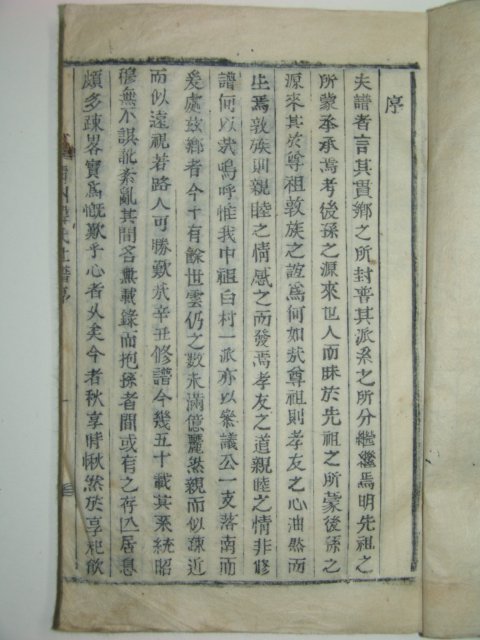 序
夫譜者言其貫鄕之所封普其派系之所分繼繼焉明先祖之
所蒙承承焉考後孫之源來世人而昧於先祖之所蒙後孫之
源來其於尊祖敦族之誼爲何如哉尊祖則孝友之心油然而
生焉敦族則親睦之情感之而發焉孝友之道親睦之情非修
譜何以哉嗚呼惟我中祖白村一派亦以參議公一支落南而
爰處玆鄕者今十有餘世雲仍之數未滿億麗然親而似疎近
而似遠視若路人可勝歎哉辛丑修譜今幾五十載其系統昭
穆無不誤訛紊亂其間各無載錄而抱孫者間或有之存亡居息
頗多疎畧實爲慨歎乎心者久矣今者秋享時愀然於享祀飮
氏世譜序